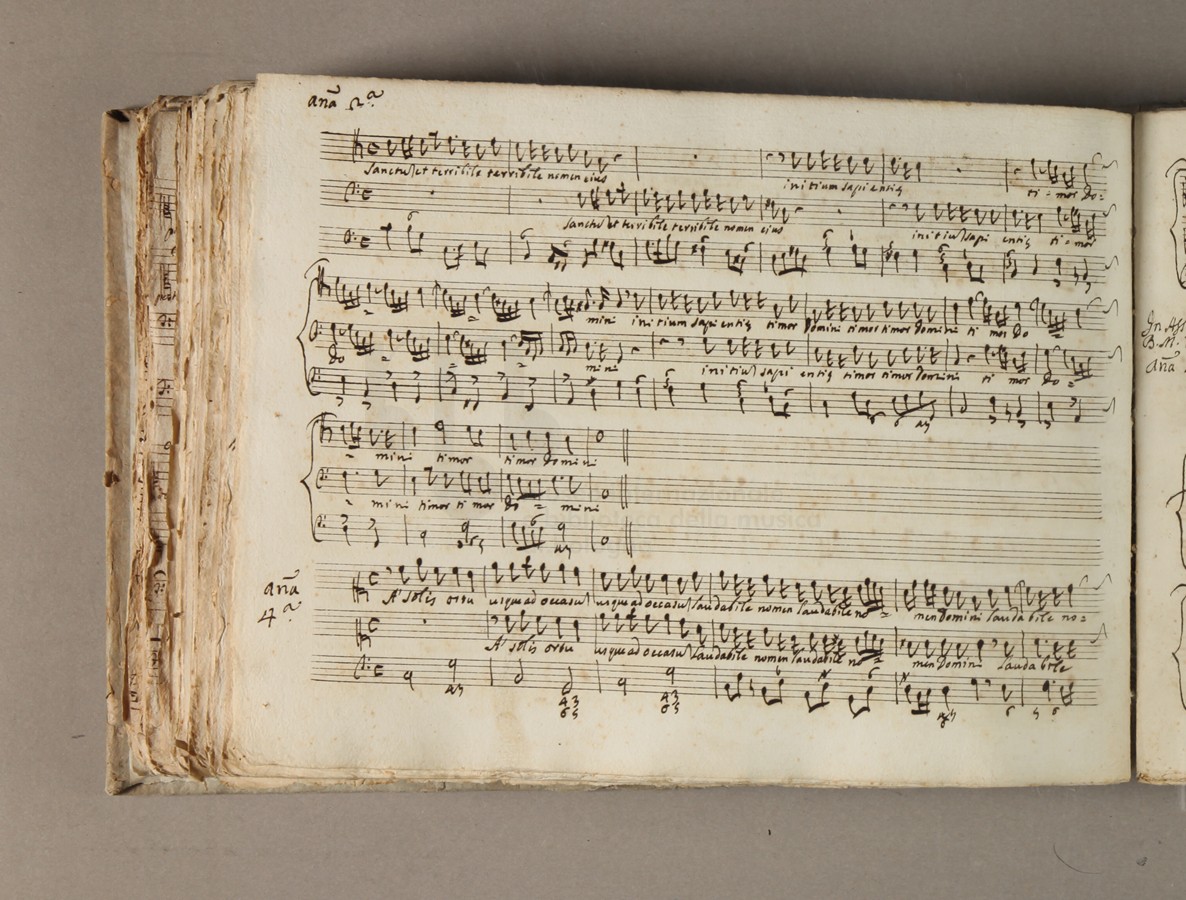 anã 2ª
Sanctu et terribile terribile nomen eius initium sapientię ti - mor Do=
Sanctu et terribile terribile nomen eius initiu sapi entię ti - mor
mini initium sapientię timor Domini timor timor Domini ti mor Do
Do = mini initiu sapi entię timor timor Domini ti mor Do =
- mini timor timor Domini
- mini timor ti mor Do = mini
anã
4ª
A solis ortu usque ad occasu usque ad occasu laudabile nomen laudabile no = men Domini laudabile no=
A solis ortu usque ad occasu laudabile nomen laudabile no = men Domini laudabile
anã